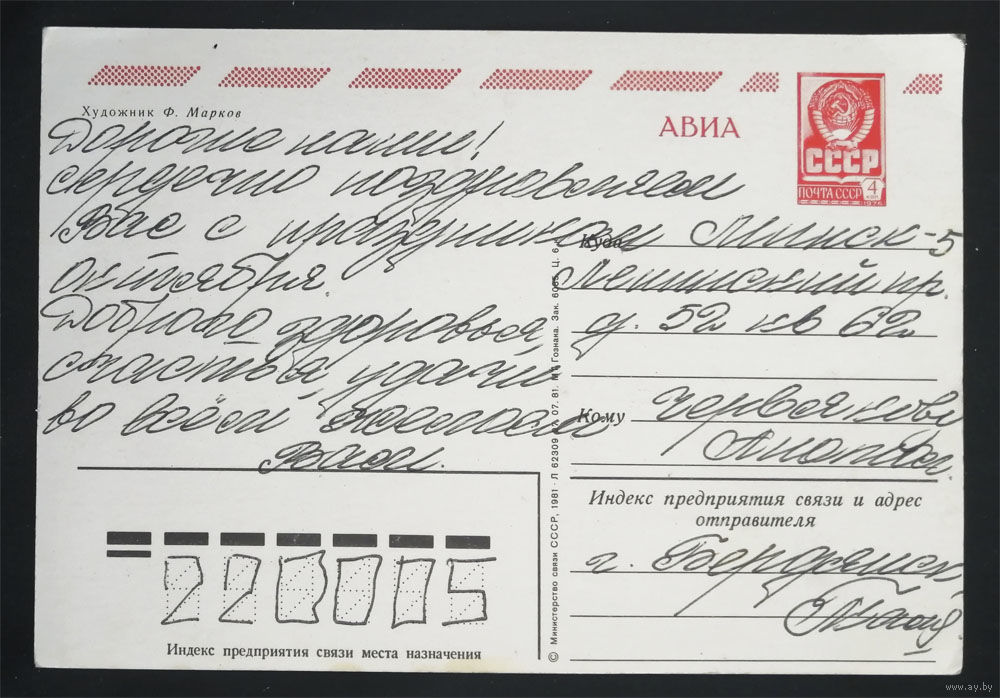 Художник Ф. Марков
АВИА
СССР
ПОЧТА СССР
4
КОП
1976
Дорогие наши!
Сердечно поздравляем
Вас с праздником
Октября.
Доброго здоровья,
счастья, удачи
во всём желаем
Вам.
Куда Минск-5
Ленинский пр.
д. 52 кв 62
Кому Червяковы
Индекс предприятия связи и адрес
отправителя
г. Бердянск
220005
Индекс предприятия связи места назначения
© Министерство связи СССР, 1981 · Л 62309 07. 81. Гознака. Зак. Ц. 6 к.
www.ay.by